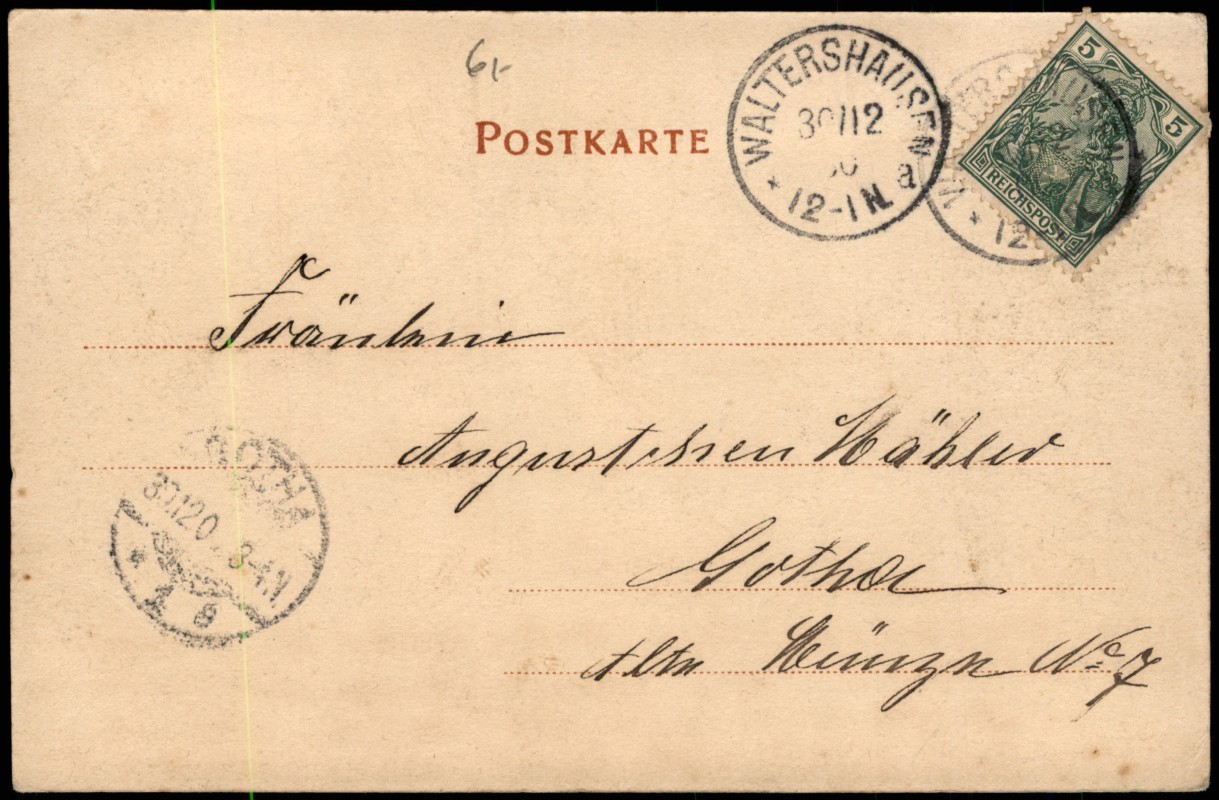 6,-
POSTKARTE
WALTERSHAUSEN
30/12
12-1N. a
5
5
REICHSPOST
* 12
Fräulein
Augustchen Mähler
Gotha
Alte Münze No 7
GOTHA
30120
3-4N
* 1 a